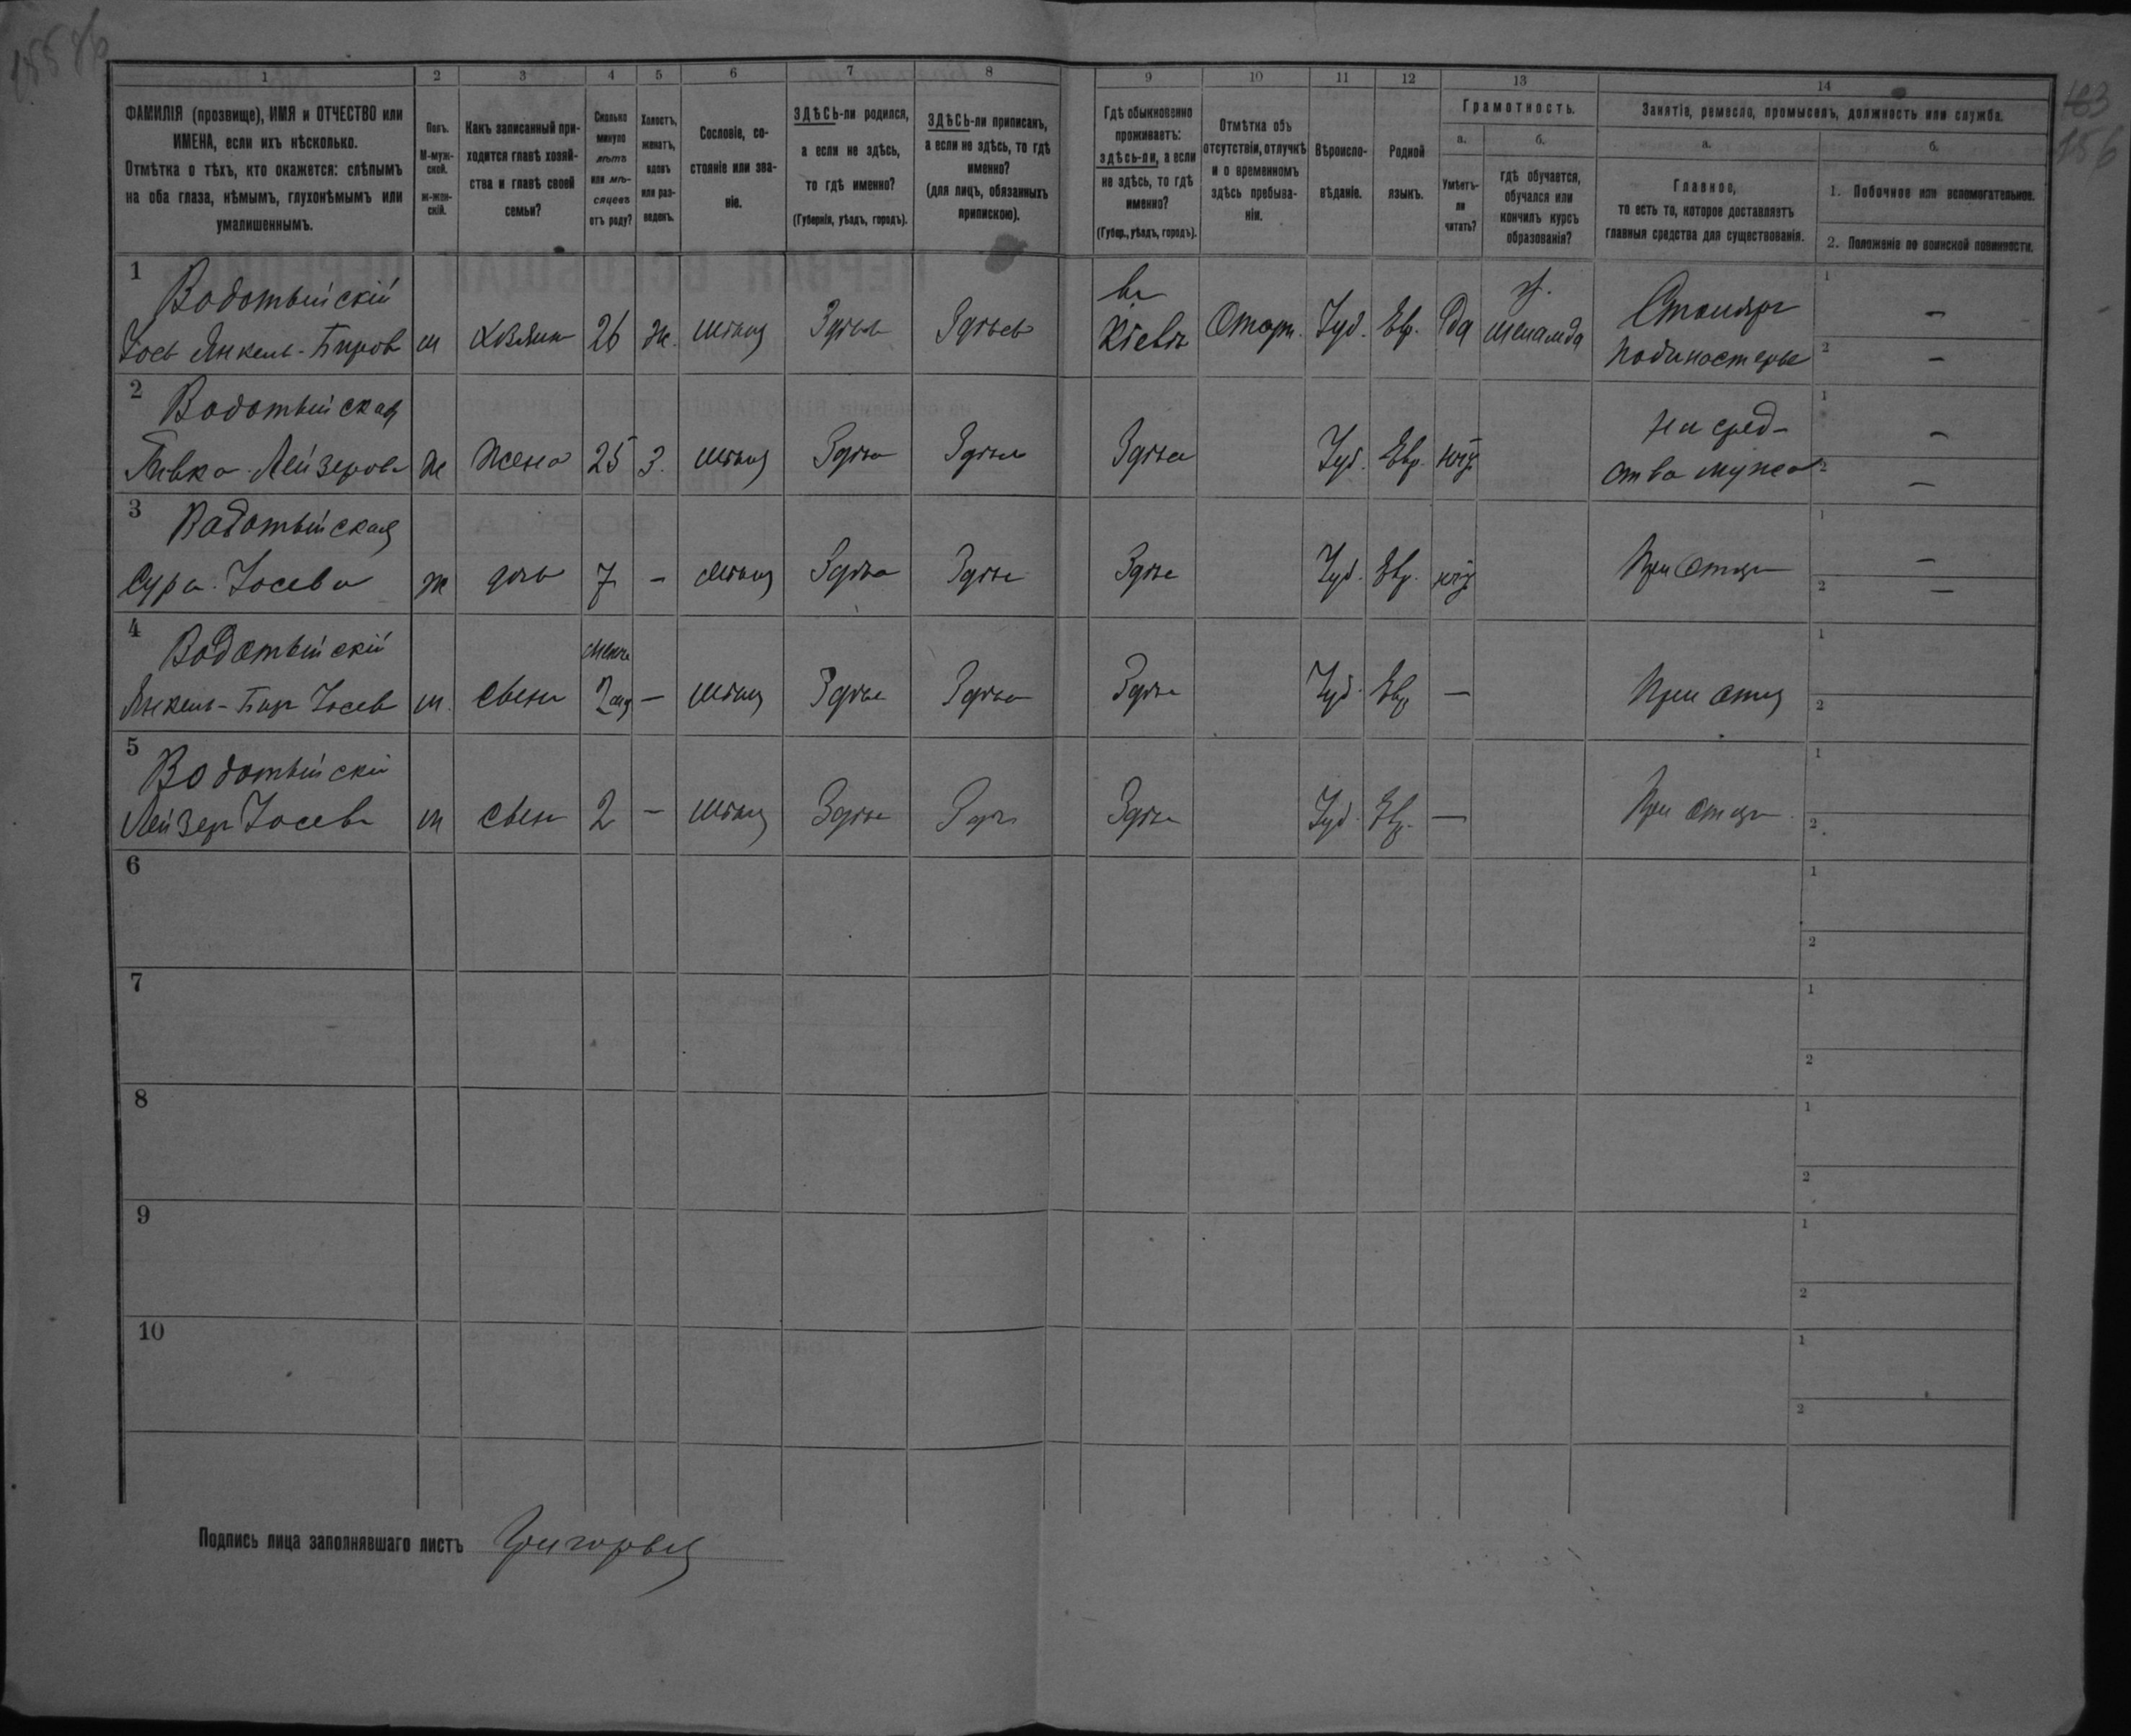 1 2 3 4 5 6 7 8 9 10 11 12 13 14
ФАМИЛІЯ (прозвище), ИМЯ и ОТЧЕСТВО или
ИМЕНА, если ихъ нѣсколько.
Отмѣтка о тѣхъ, кто окажется: слѣпымъ
на оба глаза, нѣмымъ, глухонѣмымъ или
умалишеннымъ.
Полъ.
М-муж-
ской.
ж-жен-
скій.
Какъ записанный при-
ходится главѣ хозяй-
ства и главѣ своей
семьи?
Сколько
минуло
лѣтъ
или мѣ-
сяцевъ
отъ роду?
Холостъ,
женатъ,
вдовъ
или раз-
веденъ.
Сословіе, со-
стояніе или зва-
ніе.
ЗДѢСЬ-ли родился,
а если не здѣсь,
то гдѣ именно?
(Губернія, уѣздъ, городъ).
ЗДѢСЬ-ли приписанъ,
а если не здѣсь, то гдѣ
именно?
(для лицъ, обязанныхъ
припискою).
Гдѣ обыкновенно
проживаетъ:
здѣсь-ли, а если
не здѣсь, то гдѣ
именно?
(Губер., уѣздъ, городъ).
Отмѣтка объ
отсутствіи, отлучкѣ
и о временномъ
здѣсь пребыва-
ніи.
Вѣроиспо-
вѣданіе.
Родной
языкъ.
Грамотность.
а.
Умѣетъ-
ли
читать?
б.
гдѣ обучается,
обучался или
кончилъ курсъ
образованія?
Занятіе, ремесло, промыселъ, должность или служба.
а.
Главное,
то есть то, которое доставляетъ
главныя средства для существованія.
б.
1. Побочное или вспомогательное.
2. Положеніе по воинской повинности.
1
Водотыйскій
Іось Янкель-Биров м Хозяин 26 ж. мѣщан Здѣсь Здѣсь
в
Кіевѣ Отсут. Іуд. Евр. Да
Столяр
подмастерье
1 —
2 —
2
Водотыйская
Ривка Лейзерова ж жена 25 З. мѣщан Здѣсь Здѣсь Здѣсь Іуд. Евр. нѣт
на сред-
ства мужа
1 —
2 —
3
Водотыйская
Сура Іосева ж дочь 7 – мѣщан Здѣсь Здѣсь Здѣсь Іуд. Евр. нѣт При отце
1 —
2 —
4
Водотыйскій
Янкель-Бир Іосев м. сын – мѣщан Здѣсь Здѣсь Здѣсь Іуд. Евр —
При отце
1
2
5
Водотыйскій
Лейзер Іосев м сын 2 – мѣщан Здѣсь Здѣсь Здѣсь Іуд. Евр. —
При отце
1
2
6
1
2
7
1
2
8
1
2
9
1
2
10
1
2
Подпись лица заполнявшаго листъ